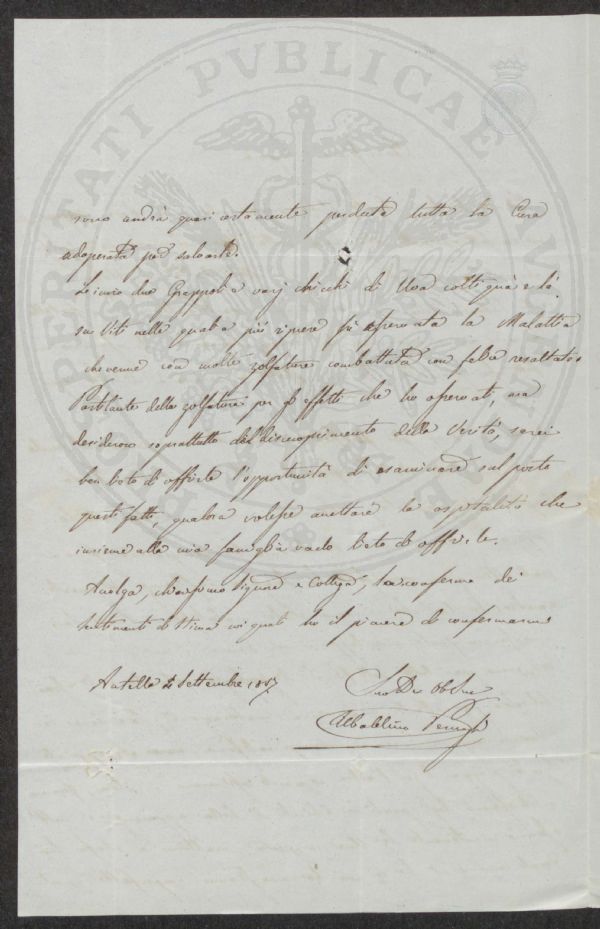 PROSPERITATI PVBLICAE AVGENDAE
sono andrà quasi certamente perduta tutta la Cura
adoperata per salvarle.
Le invio due Grappoli e varj chicchi di Uva colti quà e là
su Viti nelle quali a più riprese fù osservata la Malattia
che venne con molte zolfature combattuta con felice resultato.
Partitante della zolfatura per gli effetti che ho osservati, ma
desideroso soprattutto del discuoprimento della Verità, sarei
ben lieto di offrirle l'opportunità di esaminare sul posto
questi fatti, qualora volesse accettare la ospitalità che
insieme alla mia famiglia vado lieto di offrirle.
Accolga, Chiarissimo Signore e Collega, la conferma dei
Sentimenti di Stima coi quali ho il piacere di confermarmi
Antella 2 Settembre 1857
Suo Dev Obb Serv
Ubaldino Peruzzi